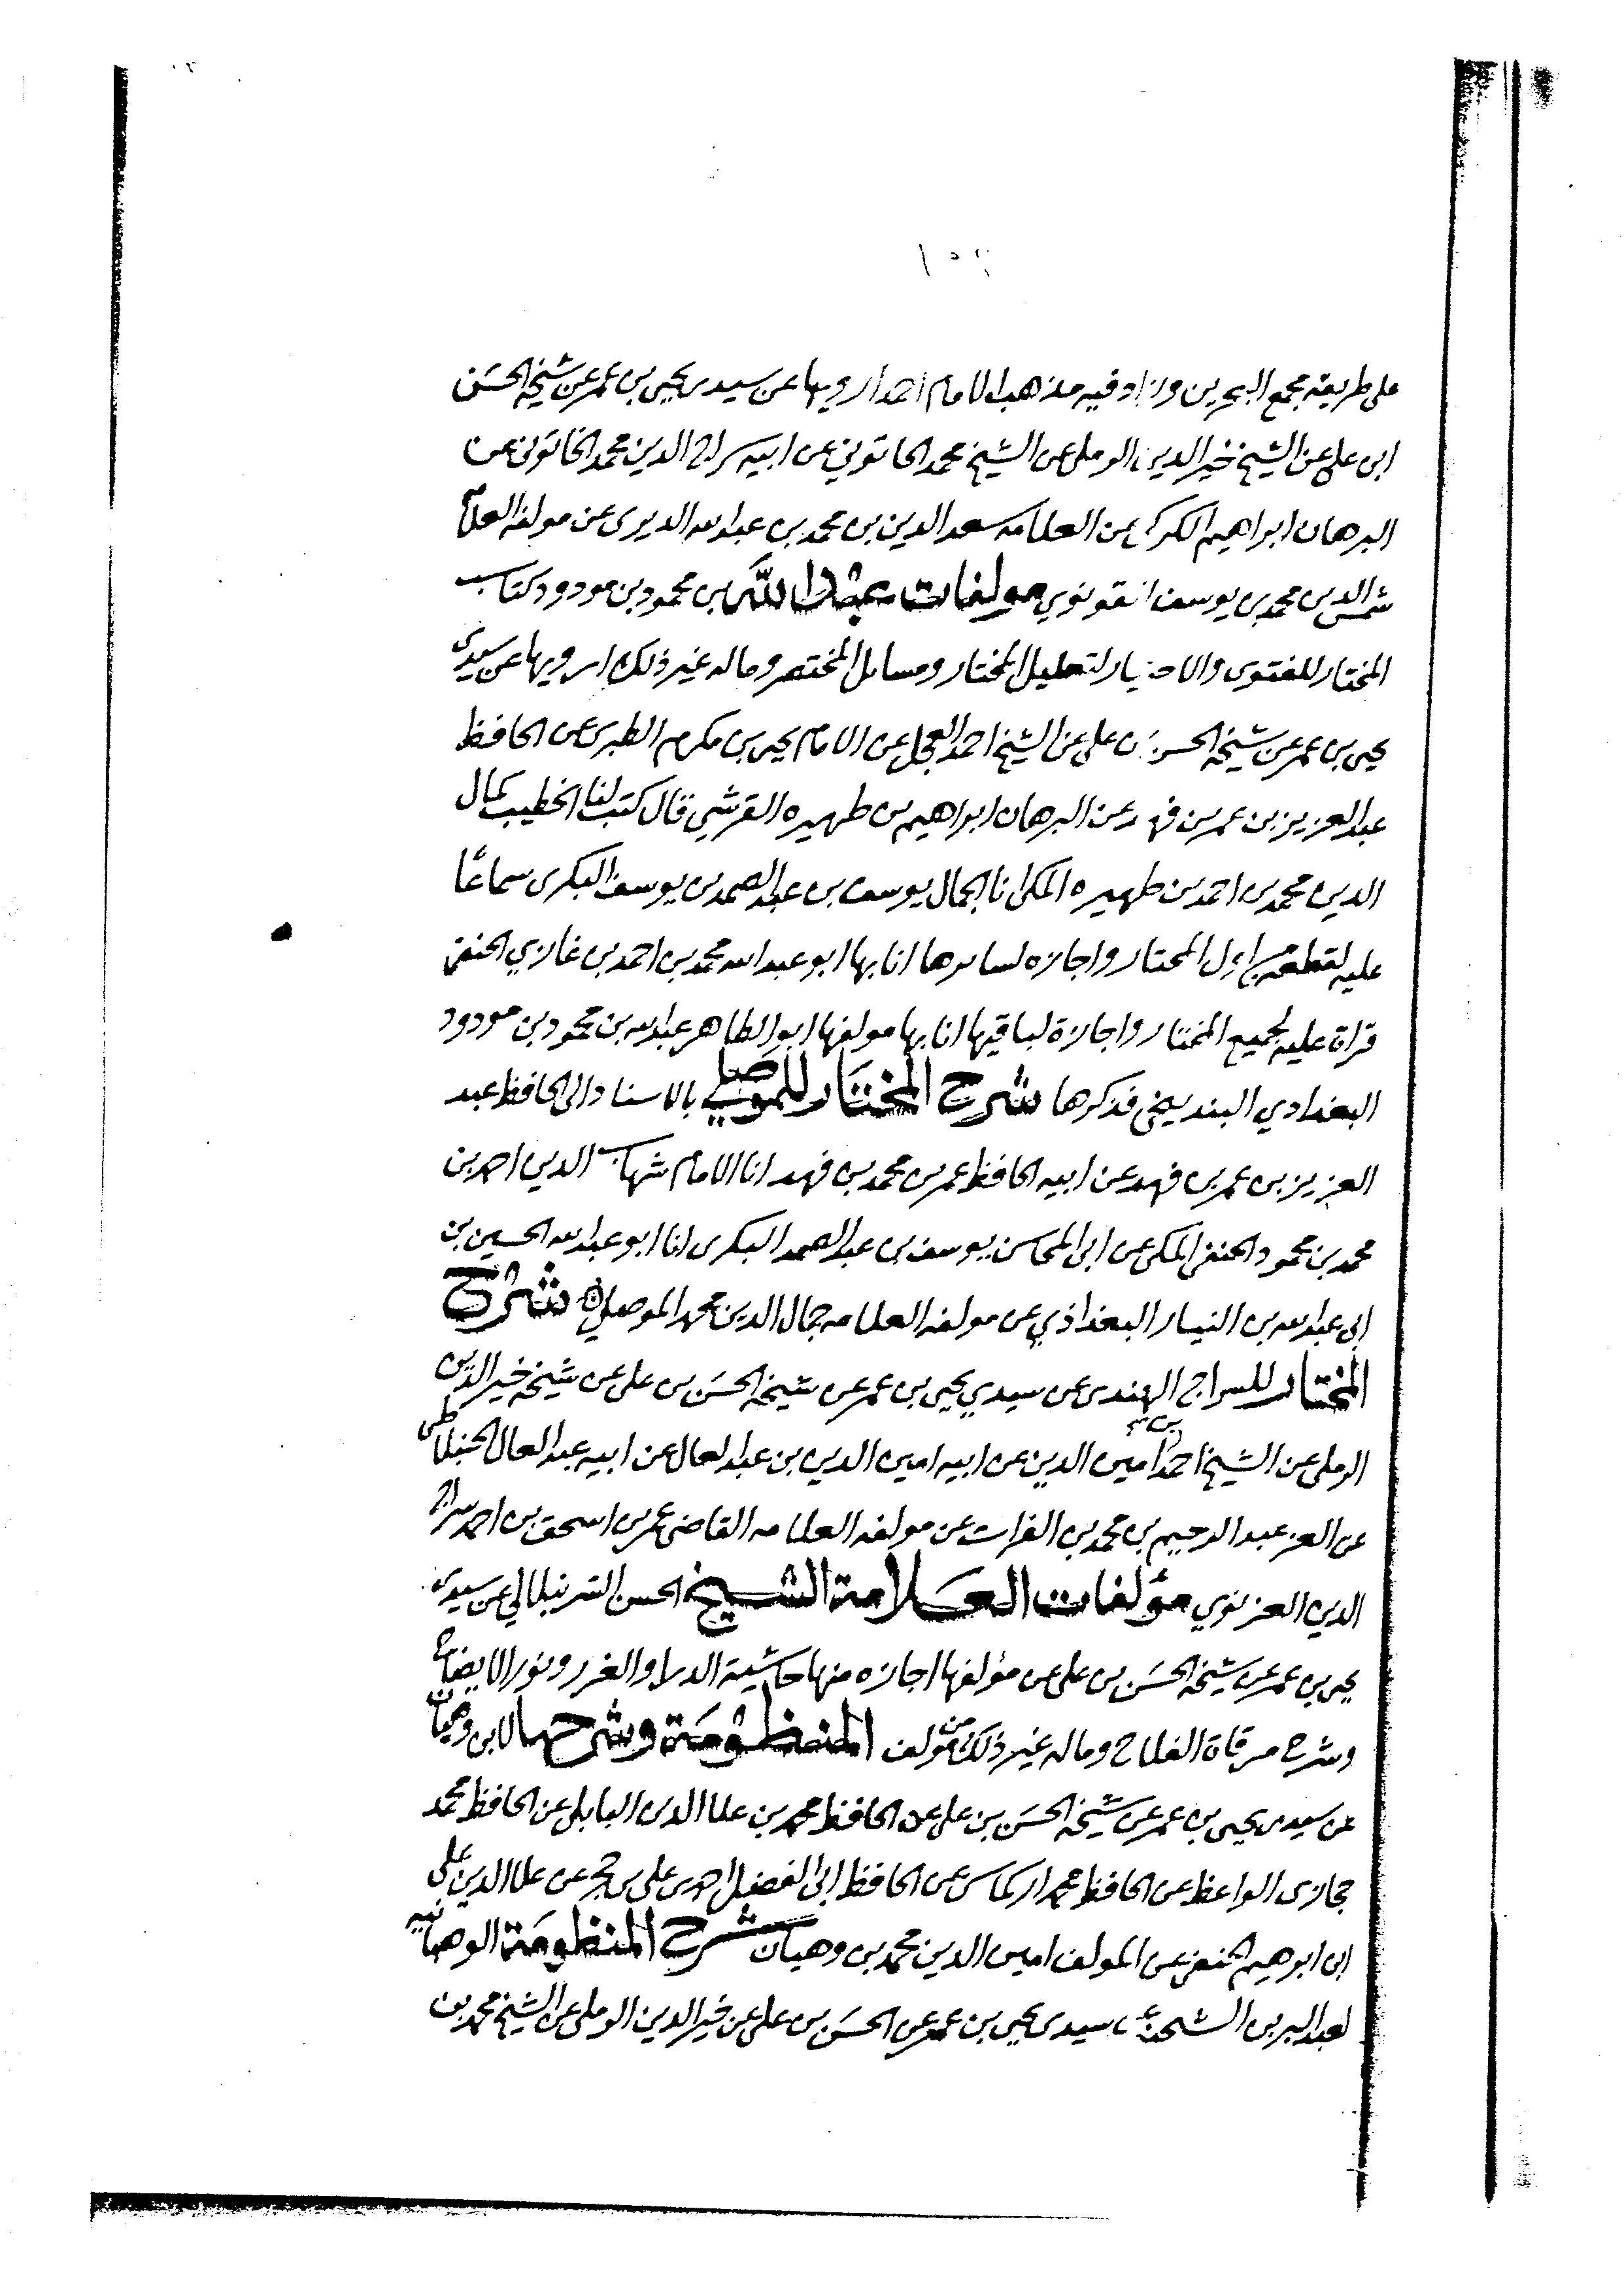 على طريقة مجمع البحرين وزاد فيه مذهب الامام احمد ارويها عن سيدى يحيى بن عمر عن شيخه الحسن
ابن على عن الشيخ خير الدين الرملى عن الشيخ محمد الحانوتي عن ابيه سراج الدين محمد الحانوتى عن
البرهان ابراهيم الكركى عن العلامه سعد الدين بن محمد بن عبدالله الديرى عن مولفه العلامه
شمس الدين محمد بن يوسف القونوي مولفات عبدالله بن محمود بن مودود كتاب
المختار للفتوى والاختيار لتعليل المختار ومسايل المختصر وماله غير ذلك ارويها عن سيدى
يحيى بن عمر عن شيخه الحسن بن على عن الشيخ احمد العجل عن الامام يحيى بن مكرم الطبرى عن الحافظ
عبد العزيز بن عمر بن فهد عن البرهان ابراهيم بن ظهيره القرشي قال كتب لنا الخطيب كمال
الدين محمد بن احمد بن ظهيره المكى انا الجمال يوسف بن عبد الصمد بن يوسف البكرى سماعًا
عليه لقطعة من اول المختار واجازه لسايرها انا بها ابو عبد الله محمد بن احمد بن غازي الحنفى
قراة عليه لجميع المختار واجازة لباقيها انا بها مولفها ابو الطاهر عبدالله بن محمود بن مودود
البغدادي البنديجى فذكرها شرح المختار للموصلي بالاسناد الى الحافظ عبد
العزيز بن عمر بن فهد عن ابيه الحافظ عمر بن محمد بن فهد انا الامام شهاب الدين احمد بن
محمد بن محمود الحنفى المكى عن ابى المحاسن يوسف بن عبد الصمد البكرى انا ابو عبدالله الحسين بن
ابى عبدالله بن النيار البغداذي عن مولفه العلامه جمال الدين محمد الموصلي شرح
المختار للسراج الهندى عن سيدي يحيى بن عمر عن شيخه الحسن بن على عن شيخه خير الدين
الرملى عن الشيخ احمد بن امين الدين عن ابيه امين الدين بن عبد العال عن ابيه عبد العال الجنبلاطى
عن العز عبد الرحيم بن محمد بن الفرات عن مولفه العلامه القاضى عمر بن اسحق بن احمد سراج
الدين الغزنوي مؤلفات العلامة الشيخ الحسن الشرنبلالي عن سيدى
يحيى بن عمر عن شيخه الحسن بن على عن مؤلفها اجازه منها حاشية الدرر والغرر ونور الايضاح
وشرح مرقاة الفلاح وماله غير ذلك من مولف المنظومة وشرحها لابن وهبان
عن سيدى يحيى بن عمر عن شيخه الحسن بن على عن الحافظ محمد بن علا الدين البابلى عن الحافظ محمد
حجازى الواعظ عن الحافظ محمد اركماس عن الحافظ ابى الفضل احمد بن على بن حجر عن علا الدين على
ابن ابرهيم الحنفى عن المولف امين الدين محمد بن وهبان شرح المنظومة الوهبانيه
لعبد البر بن الشحنه عن سيدى يحيى بن عمر عن الحسن بن على عن خير الدين الرملى عن الشيخ محمد بن